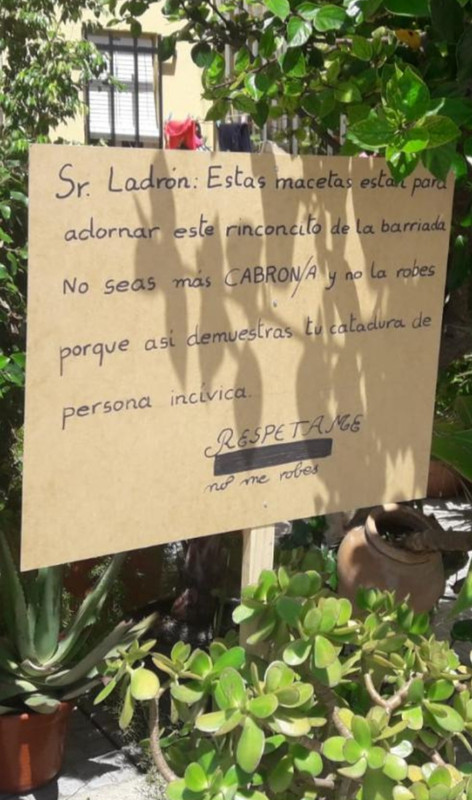 Sr. Ladrón: Estas macetas están para
adornar este rinconcito de la barriada
No seas más CABRON/A y no la robes
porque asi demuestras tu catadura de
persona incívica.
RESPETAME
no me robes